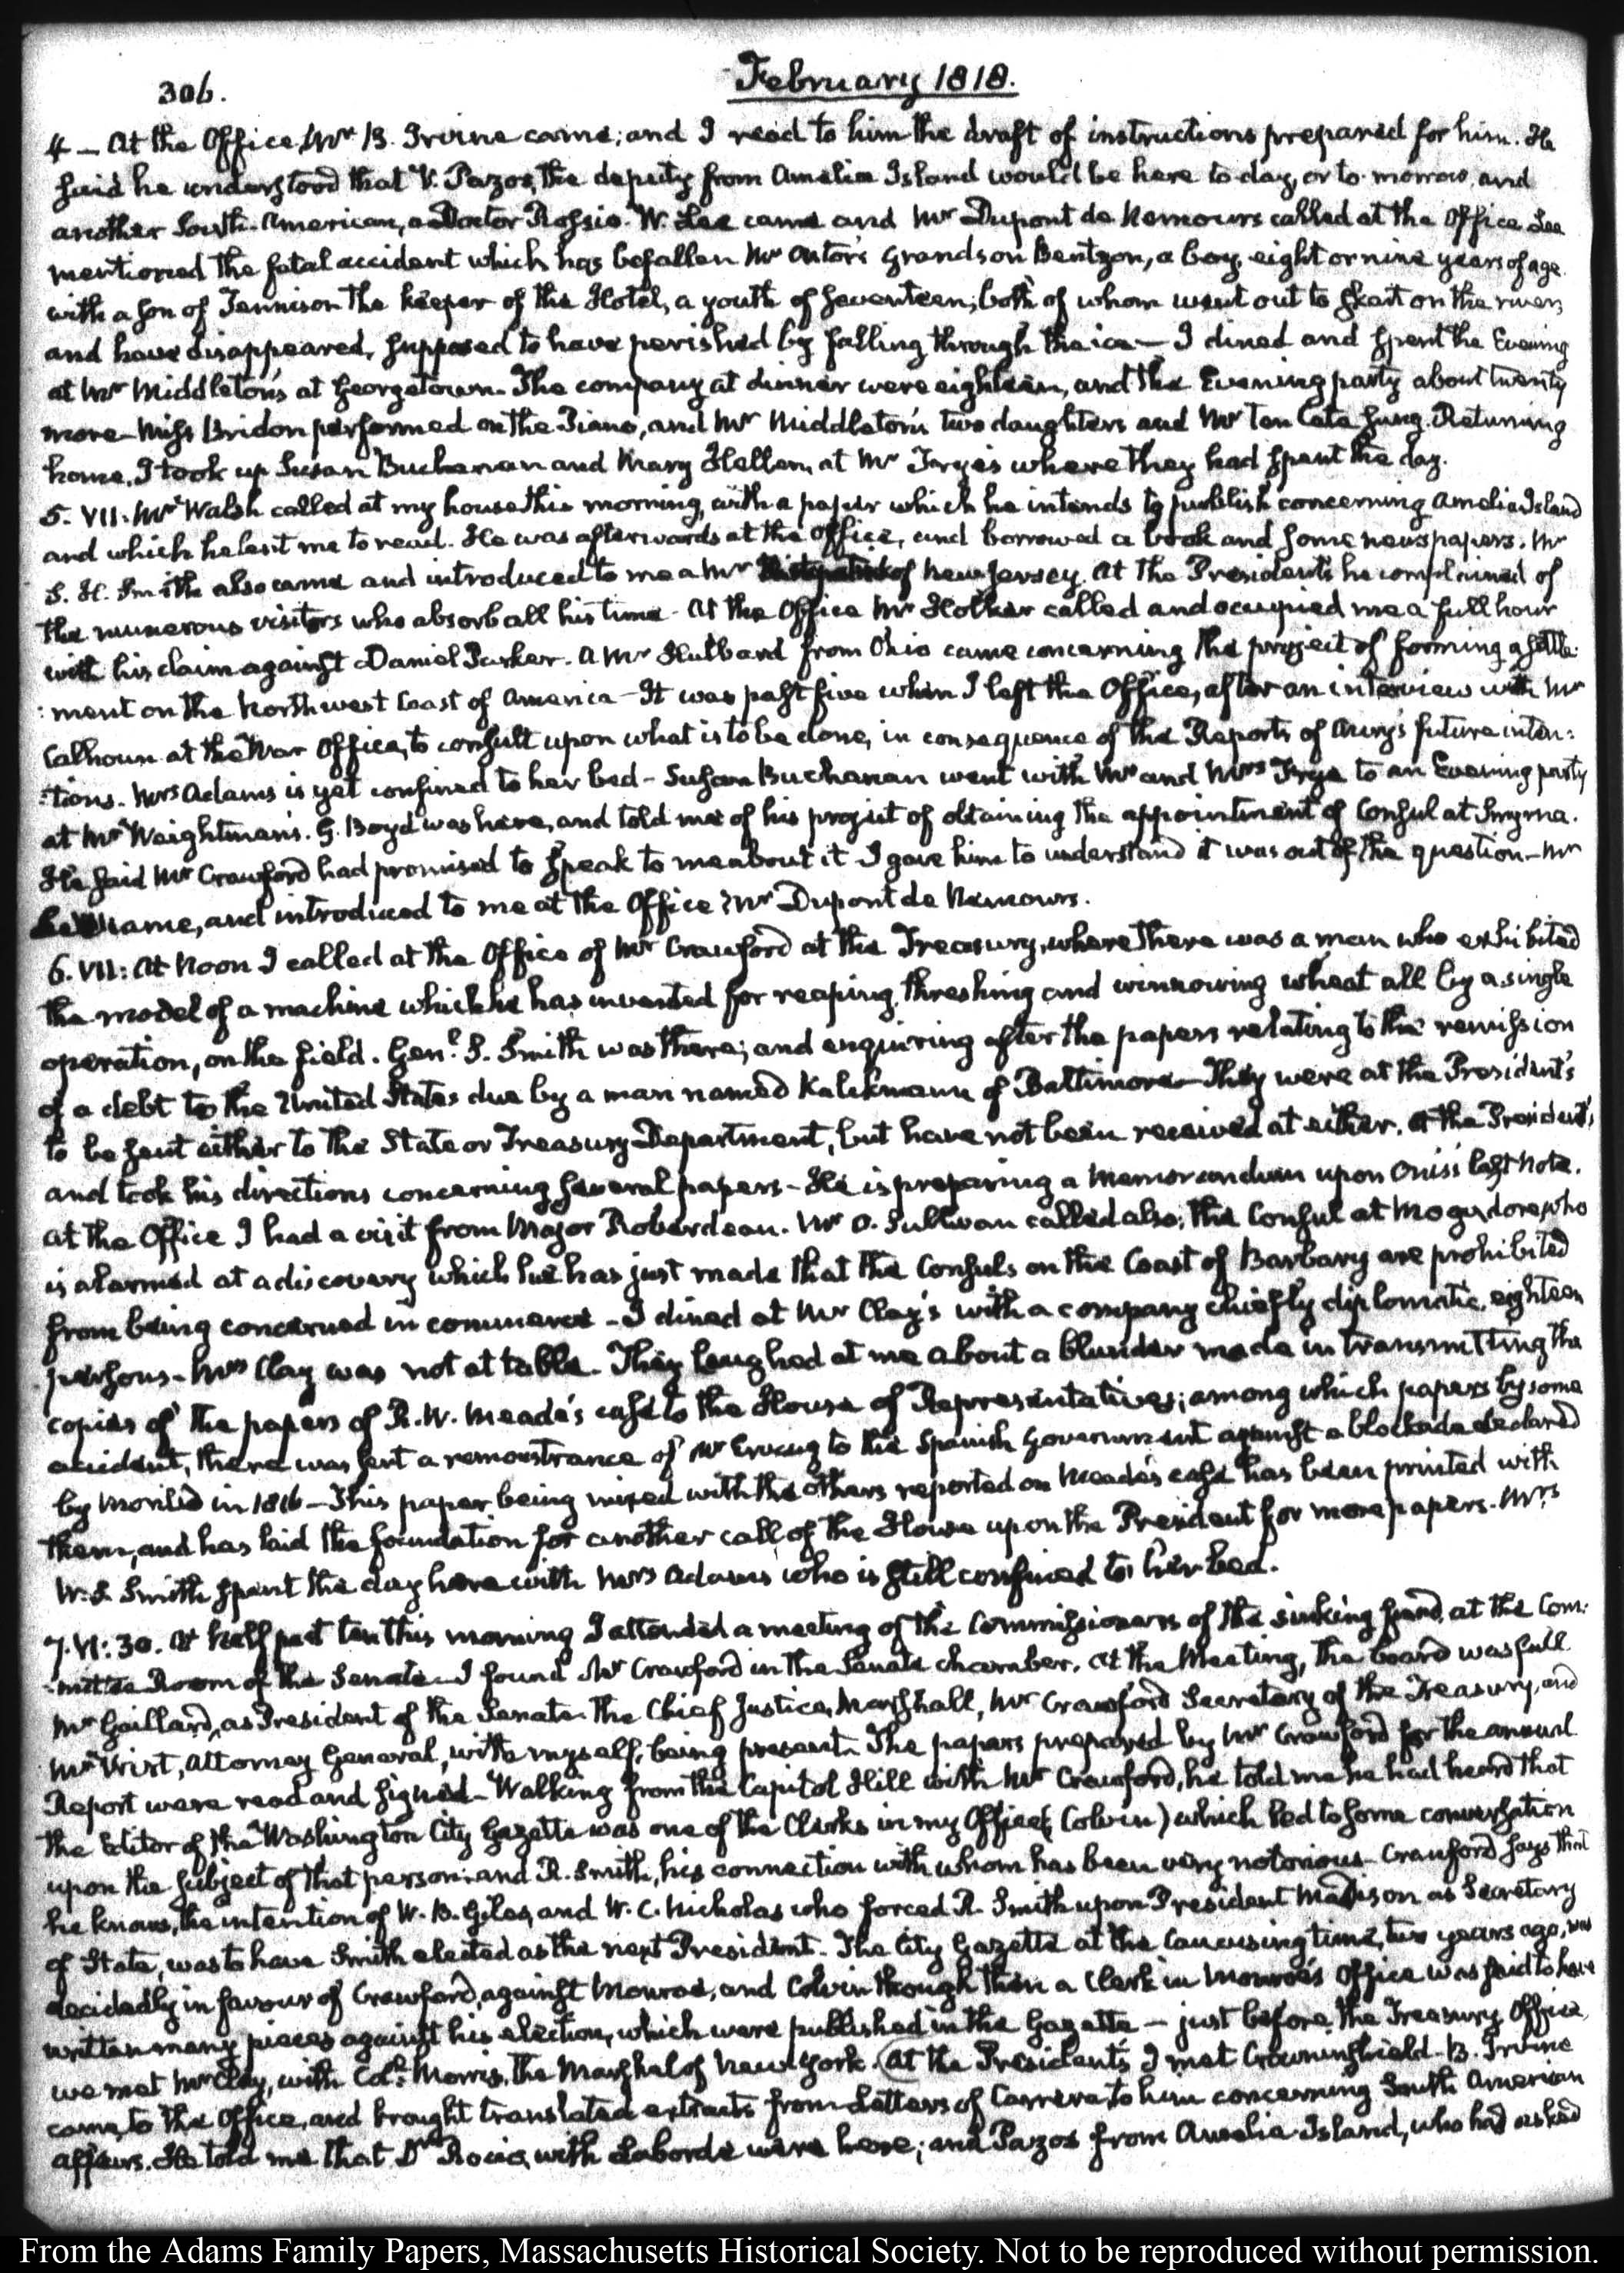 306.
February 1818.
4 — At the Office, Mr B. Irvine came; and I read to him the draft of instructions prepared for him. He
said he understood that V. Pazos, the deputy from Amelia Island would be here to day, or to-morrow, and
another South-American, a Doctor Rossio. W. Lee came and Mr Dupont de Nemours called at the Office. Lee
mentioned the fatal accident which has befallen Mr Astor's Grandson Bentzon, a boy, eight or nine years of age.
with a son of Tennison the keeper of the Hotel, a youth of seventeen; both of whom went out to skait on the river,
and have disappeared, supposed to have perished by falling through the ice — I dined and spent the Evening
at Mr Middleton's at Georgetown. The company at dinner were eighteen, and the Evening party about twenty
more — Miss Bridon performed on the Piano, and Mr Middleton's two daughters and Mr Ten Cate sung. Returning
home, I took up Susan Buchanan and Mary Hellen, at Mr Frye's where they had spent the day.
5. VII: Mr Walsh called at my house this morning, with a paper which he intends to publish concerning Amelia Island
and which he lent me to read. He was afterwards at the office, and borrowed a book and some newspapers. Mr
S. H. Smith also came and introduced to me a Mr of New Jersey. At the President's he complained of
the numerous visitors who absorb all his time — At the Office Mr Holker called and occupied me a full hour
with his claim against Daniel Parker. A Mr Hulbard from Ohio came concerning the project of forming a settle-
:ment on the North west Coast of America — It was past five when I left the Office, after an interview with Mr
Calhoun at the War Office, to consult upon what is to be done, in consequence of the Reports of Aury's future inten:
:tions. Mrs Adams is yet confined to her bed — Susan Buchanan went with Mr and Mrs Frye to an Evening party
at Mr Weightman's. G. Boyd was here, and told me of his project of obtaining the appointment of Consul at Smyrna.
He said Mr Crawford had promised to speak to me about it. I gave him to understand it was out of the question — Mr
came, and introduced to me at the Office Mr Dupont de Nemours.
6. VII: At Noon I called at the Office of Mr Crawford at the Treasury, where there was a man who exhibited
the model of a machine which he has invented for reaping, threshing and winnowing wheat all by a single
operation, on the field. Genl. S. Smith was there; and enquiring after the papers relating to the remission
of a debt to the United States due by a man named Kalckmann of Baltimore — They were at the President's
to be sent either to the State or Treasury Department, but have not been received at either. At the President's
and took his directions concerning several papers — He is preparing a Memorandum upon Onis's last Note.
at the Office I had a visit from Major Roberdeau. Mr O. Sullivan called also; the Consul at Mogadore, who
is alarmed at a discovery which he has just made that the Consuls on the Coast of Barbary are prohibited
from being concerned in commerce — I dined at Mr Clay's with a company chiefly diplomatic, eighteen
persons — Mrs Clay was not at table. They laughed at me about a blunder made in transmitting the
copies of the papers of R. W. Meade's case to the House of Representatives; among which papers by some
accident, there was sent a remonstrance of Mr Erving to the Spanish Government against a blockade declared
by Morillo in 1816 — This paper being mixed with the others reported on Meade's case has been printed with
them, and has laid the foundation for another call of the House upon the President for more papers. Mrs
W. S. Smith spent the day here with Mrs Adams who is still confined to her bed.
7. VI: 30. At half past ten this morning I attended a meeting of the Commissioners of the sinking fund, at the Com:
:mittee Room of the Senate — I found Mr Crawford in the Senate chamber. At the Meeting, the board was full
Mr Gaillard, as President of the Senate the Chief Justice, Marshall, Mr Crawford Secretary of the Treasury, and
Mr Wirt, Attorney General, with myself, being present. The papers prepared by Mr Crawford for the annual
Report were read and signed — Walking from the Capitol Hill with Mr Crawford, he told me he had heard that
the Editor of the Washington City Gazette was one of the Clerks in my Office (Colvin) which led to some conversation
upon the subject of that person; and R. Smith, his connection with whom has been very notorious — Crawford says that
he knows, the intention of W. B. Giles, and W. C. Nicholas who forced R. Smith upon President Madison as Secretary
of State, was to have Smith elected as the next President. The City Gazette at the Caucusing time, two years ago, was
decidedly in favour of Crawford, against Monroe, and Colvin though then a Clerk in Monroe's Office was said to have
written many pieces against his election, which were published in the Gazette — just before the Treasury Office,
we met Mr Clay, with Col. Morris, the Marshal of New York. At the President's I met Crowninshield. B. Irvine
came to the Office, and brought translated extracts from Letters of Carrera to him concerning South American
affairs. He told me that Dr Rocio, with Laborde were here; and Pazos from Amelia Island, who had asked
From the Adams Family Papers, Massachusetts Historical Society. Not to be reproduced without permission.